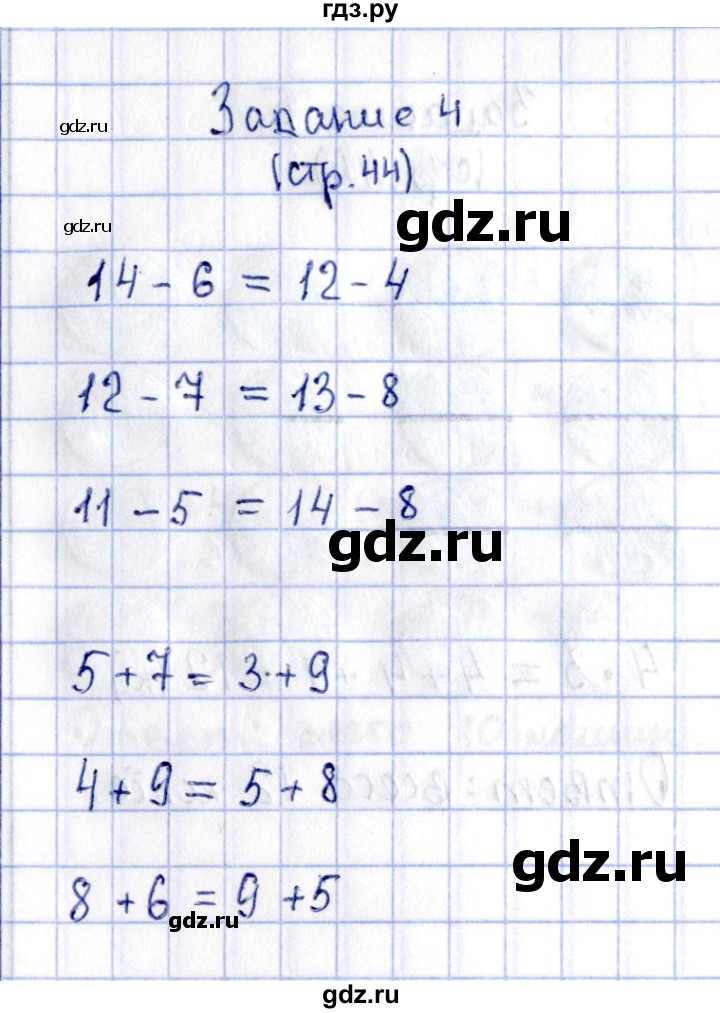 гдз.ру
Задание 4
gdz.ru
(стр. 44)
gdz.ru
gdz.ru
14 - 6 = 12 - 4
12 - 7 = 13 - 8
11 - 5 = 14 - 8
gdz.ru
5 + 7 = 3 + 9
4 + 9 = 5 + 8
gdz.ru
8 + 6 = 9 + 5
gdz.ru
gdz.ru